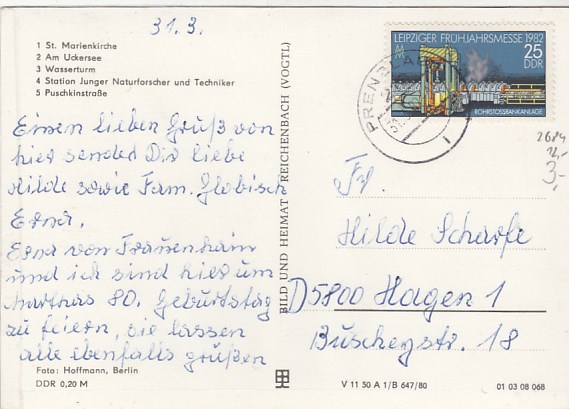 31. 3.
1 St. Marienkirche
2 Am Uckersee
3 Wasserturm
4 Station Junger Naturforscher und Techniker
5 Puschkinstraße
Einen lieben Gruß von
hier sendet Dir liebe
Hilde sowie Fam. Globisch
Erna.
Erna von Frauenhain
und ich sind hier um
Marthas 80. Geburtstag
zu feiern, sie lassen
alle ebenfalls grüßen
Foto: Hoffmann, Berlin
DDR 0,20 M
BILD UND HEIMAT REICHENBACH (VOGTL)
LEIPZIGER FRÜHJAHRSMESSE 1982
MM
25
DDR
ROHRSTOSSBANKANLAGE
PRENZLAU
1
2684
12,-
3,-
Fr.
Hilde Scharfe
D5800 Hagen 1
Buscheystr. 18
V 11 50 A 1/B 647/80
01 03 08 068